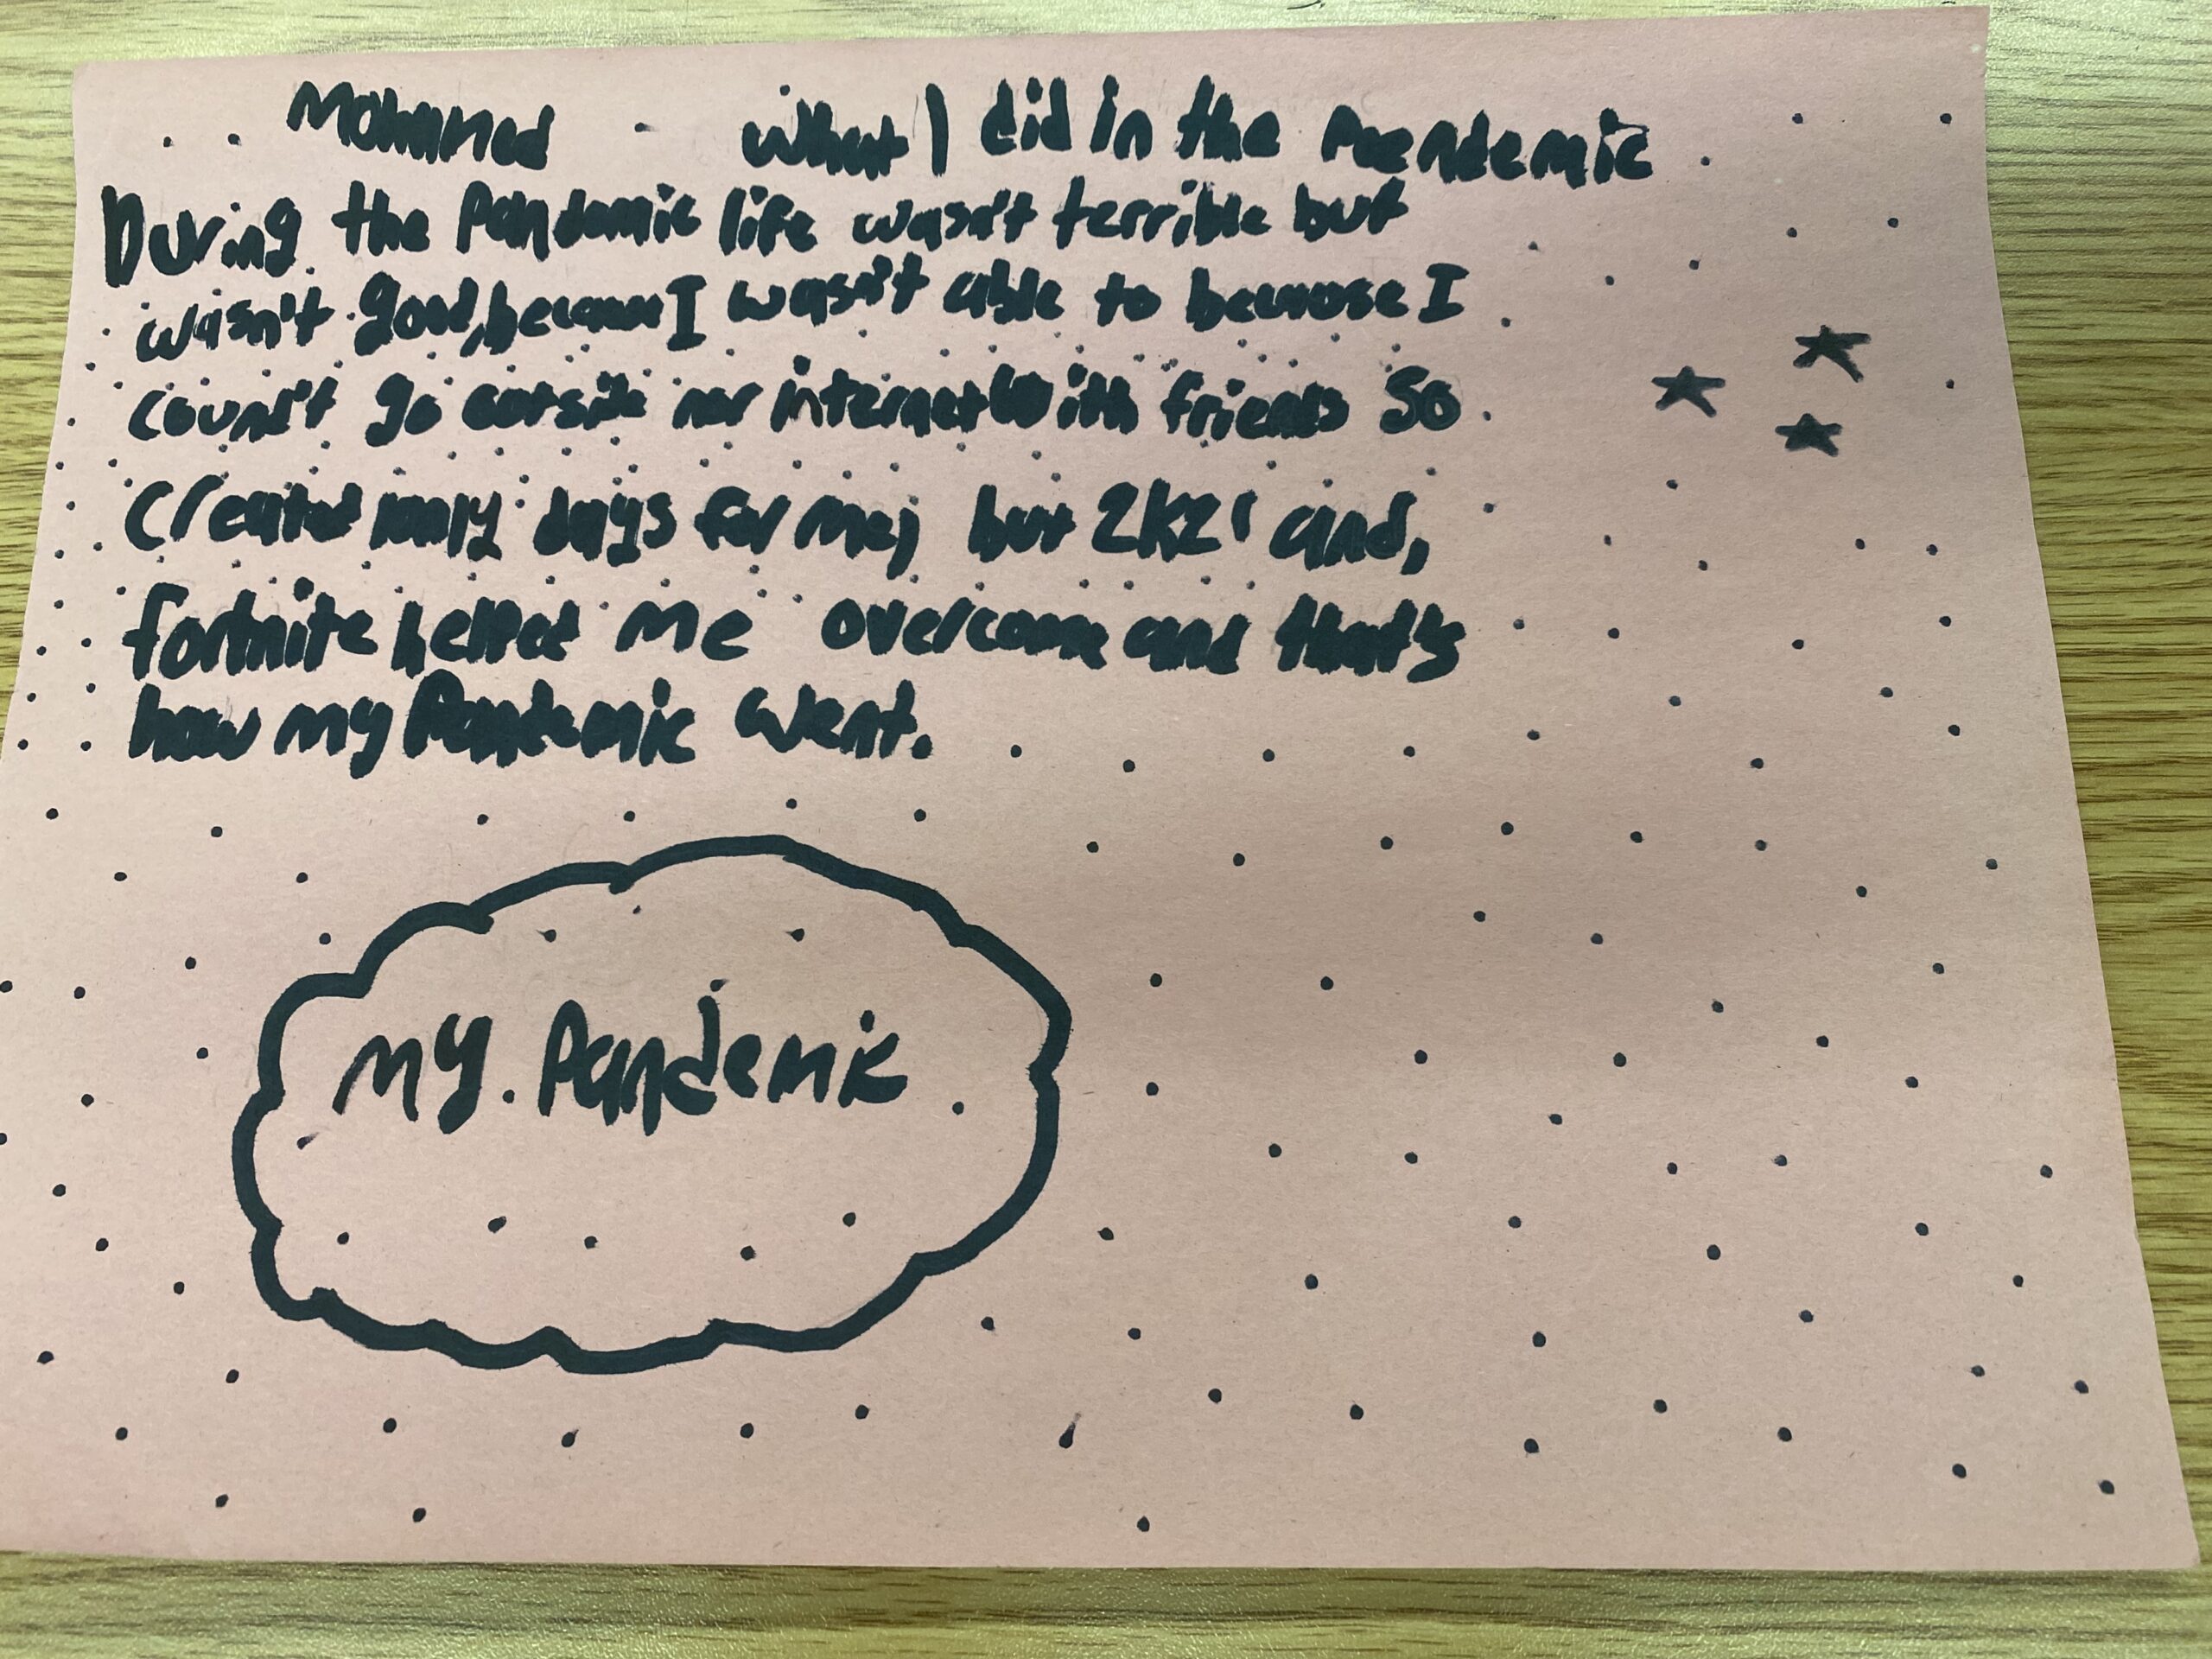 Mohamed what I did in the Pandemic
During the Pandemic life wasn't terrible but
wasn't good, because I wasn't able to because I
coundn't go outside nor internet With friends So
Created many days for me, but 2K21 and,
fortnite helped me overcome and that's
how my Pandemic went.
my Pandemic